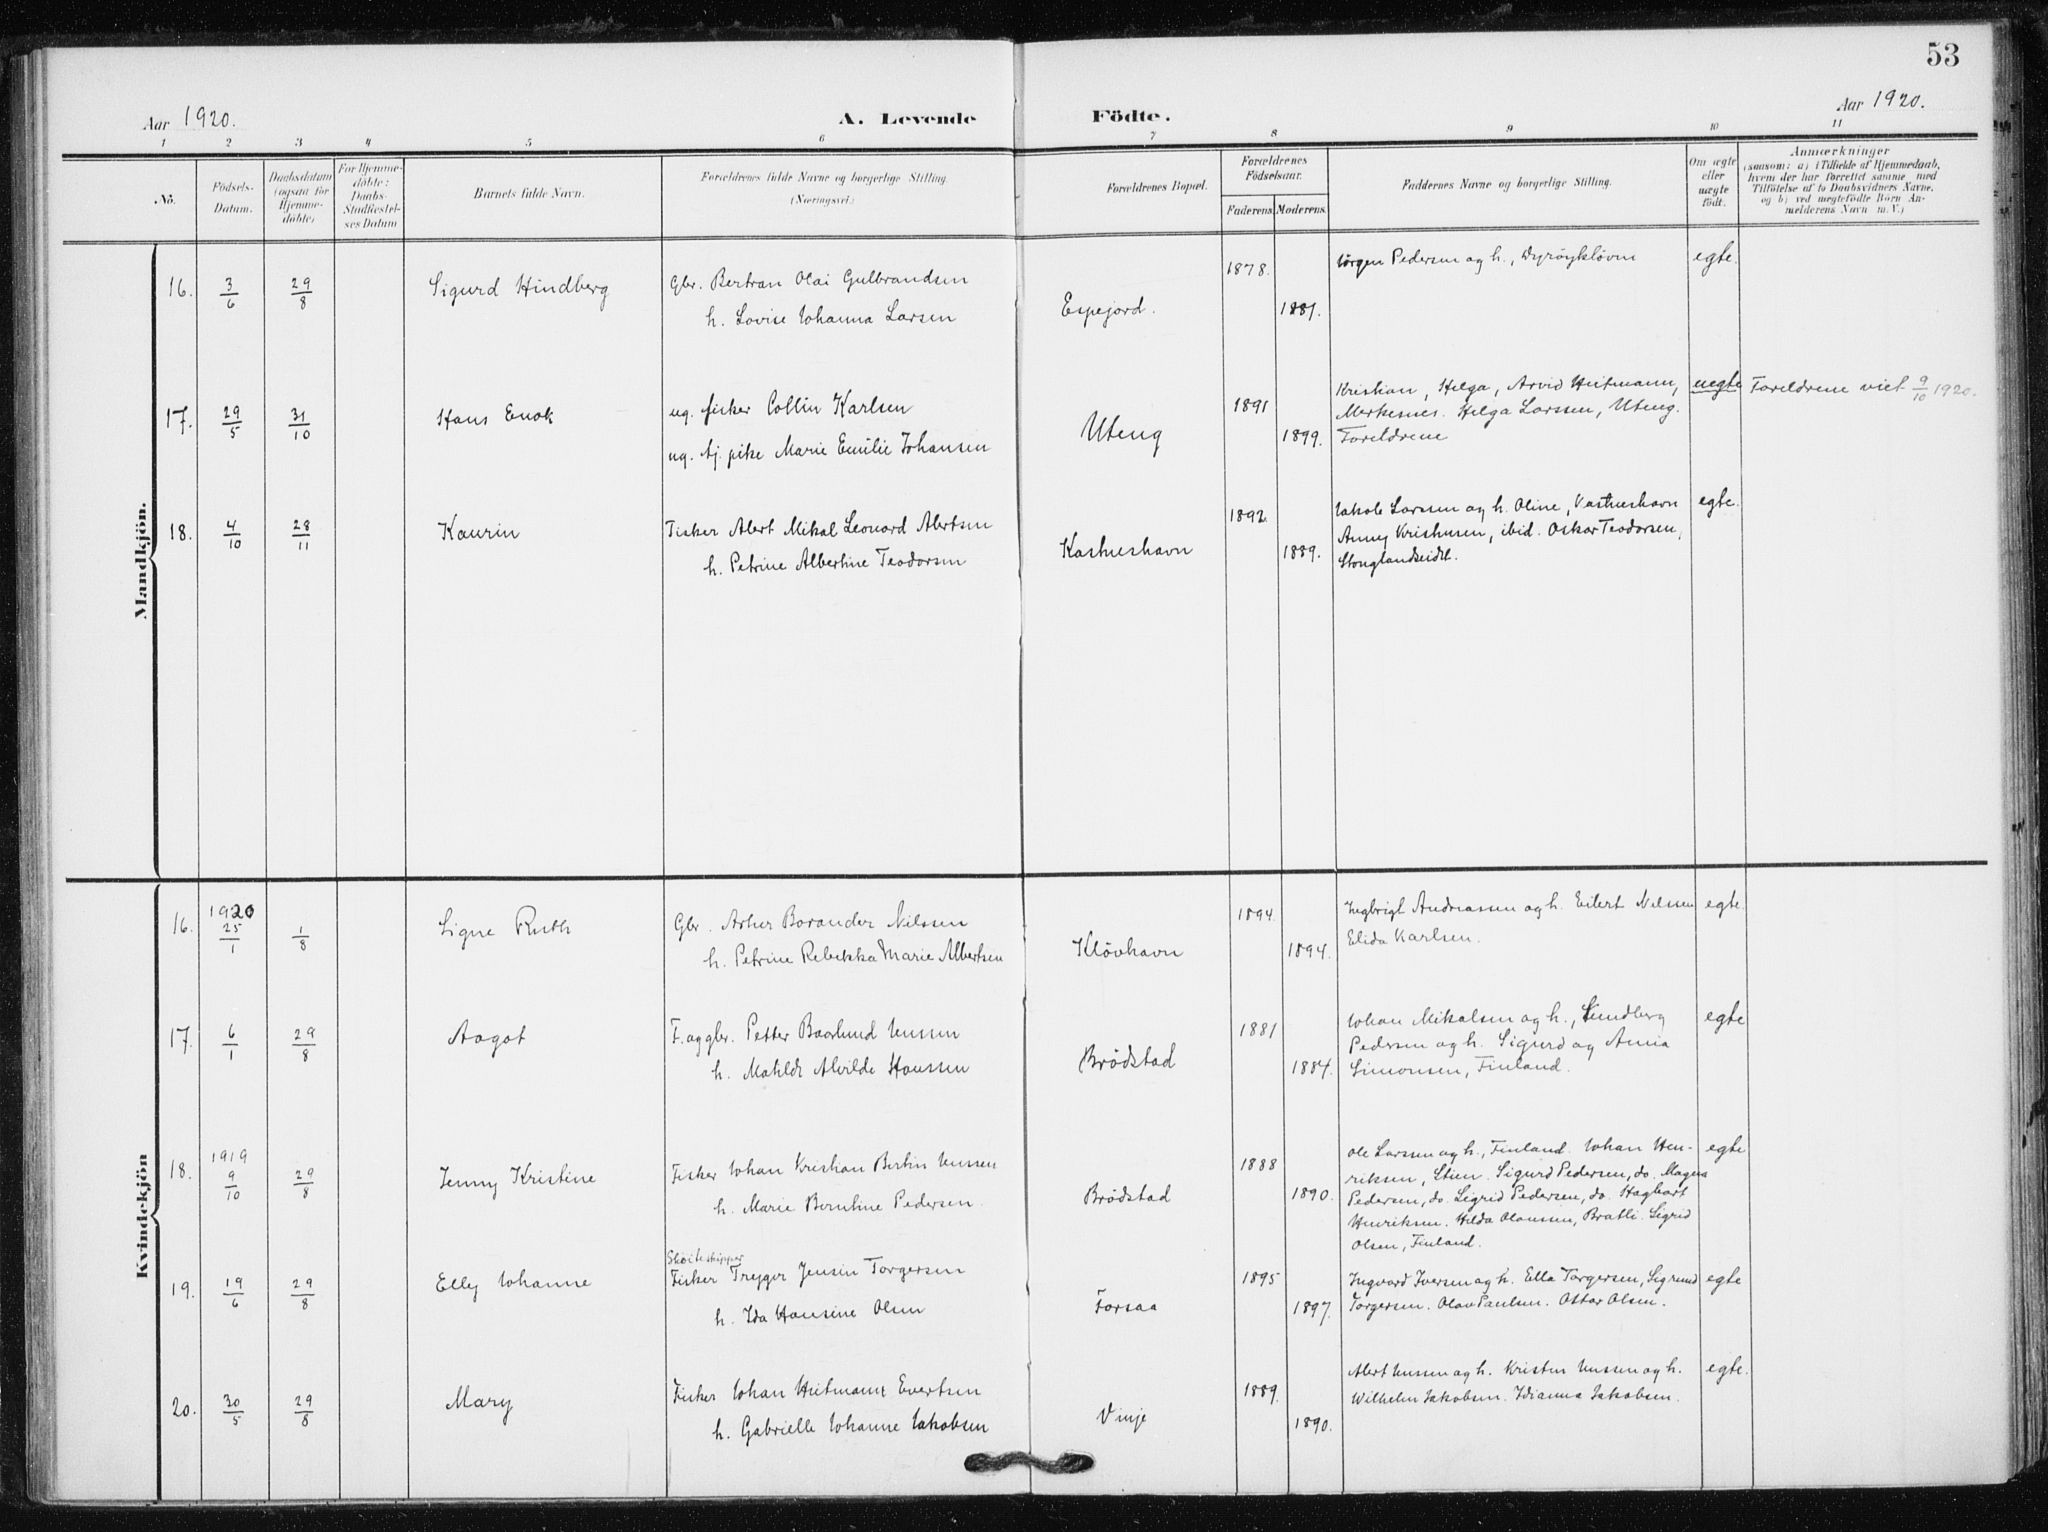 53
Aar 1920.
A. Levende Födte.
Aar 1920.
1 2 3 4 5 6 7 8 9 10 11
No.
Födsels-
Datum.
Daabsdatum
(ogsaa for
Hjemme-
döbte)
For Hjemme-
döbte:
Daabs-
Stadfæstel-
ses Datum
Barnets fulde Navn.
Forældrenes fulde Navne og borgerlige Stilling.
(Næringsvei.)
Forældrenes Bopæl.
Forældrenes
Födselsaar.
Faderens. Moderens.
Faddernes Navne og borgerlige Stilling.
Om ægte
eller
uægte
födt.
Anmærkninger
(saasom: a) i Tilfælde af Hjemmedaab,
hvem der har forrettet samme med
Tilföielse af to Daabsvidners Navne,
og b) ved uægtefödte Börn An-
melderens Navn m. V.)
Mandkjön.
16. 3/6 29/8 Sigurd Hindberg
Gbr. Bertran Olai Gulbrandsen
h. Lovise Johanna Larsen
Espejord.
1878.
1881.
Jørgen Pedersen og h., Dyrøykløvn
egte.
17. 29/5 31/10 Hans Enok
ug. fisker Collin Karlsen
ug. tj. pike Marie Emilie Johansen
Uteng
1891
1899.
Kristian, Helga, Arvid Heitmann,
Merkesnes. Helga Larssen, Uteng.
Foreldrene
uegte
Foreldrene viet 9/10 1920.
18. 4/10 28/11 Kaurin
Fisker Alert Mikal Leonard Alertsen
h. Petrine Albertine Teodorsen
Kastneshavn
1892.
1889.
Jakob Larssen og h. Oline, Kastneshavn
Anny Kristiansen, ibid. Oskar Teodorsen,
Stonglandseidet.
egte.
Kvindekjön
16. 1920 25/1 1/8 Signe Ruth
Gbr. Arher Borander Nilssen
h. Petrine Rebekka Marie Albertsen
Kløvhavn
1894.
1894.
Ingbrigt Andreassen og h. Eilert Nilssen
Elida Karlsen.
egte.
17. 6/1 29/8 Aagot
F. og gbr. Petter Baarlund Jenssen
h. Matilde Alvilde Hanssen
Brødstad
1881
1884.
Johan Mikalsen og h., Lundberg
Pedersen og h. Sigurd og Anna
Simonsen, Finland.
egte
18. 1919 9/10 29/8 Jenny Kristine
Fisker Johan Kristian Bertin Jenssen
h. Marie Berntine Pedersen.
Brødstad
1888
1890.
Ole Larssen og h., Finland. Johan Hen-
riksen, Stien. Sigurd Pedersen, do. Magna
Pedersen, do. Sigrid Pedersen, do. Hagbart
Henriksen. Hilda Olaussen, Bratli. Sigrid
Olsen, Finland.
egte
19. 19/6 29/8 Elly Johanne
Skøiteskipper
Fisker Trygve Jensin Torgersen
h. Ida Hansine Olsen
Forsaa
1895
1897.
Ingvard Iversen og h. Ella Torgersen, Sigrund
Torgersen. Olav Paulsen. Ottar Olsen.
egte
20. 30/5 29/8 Mary
Fisker Johan Heitmann Evertsen
h. Gabrielle Johanne Jakobsen
Vinje
1889.
1890.
Alert Jenssen og h. Kristen Jenssen og h.
Wilhelm Jakobsen. Idianna Jakobsen.
egte.